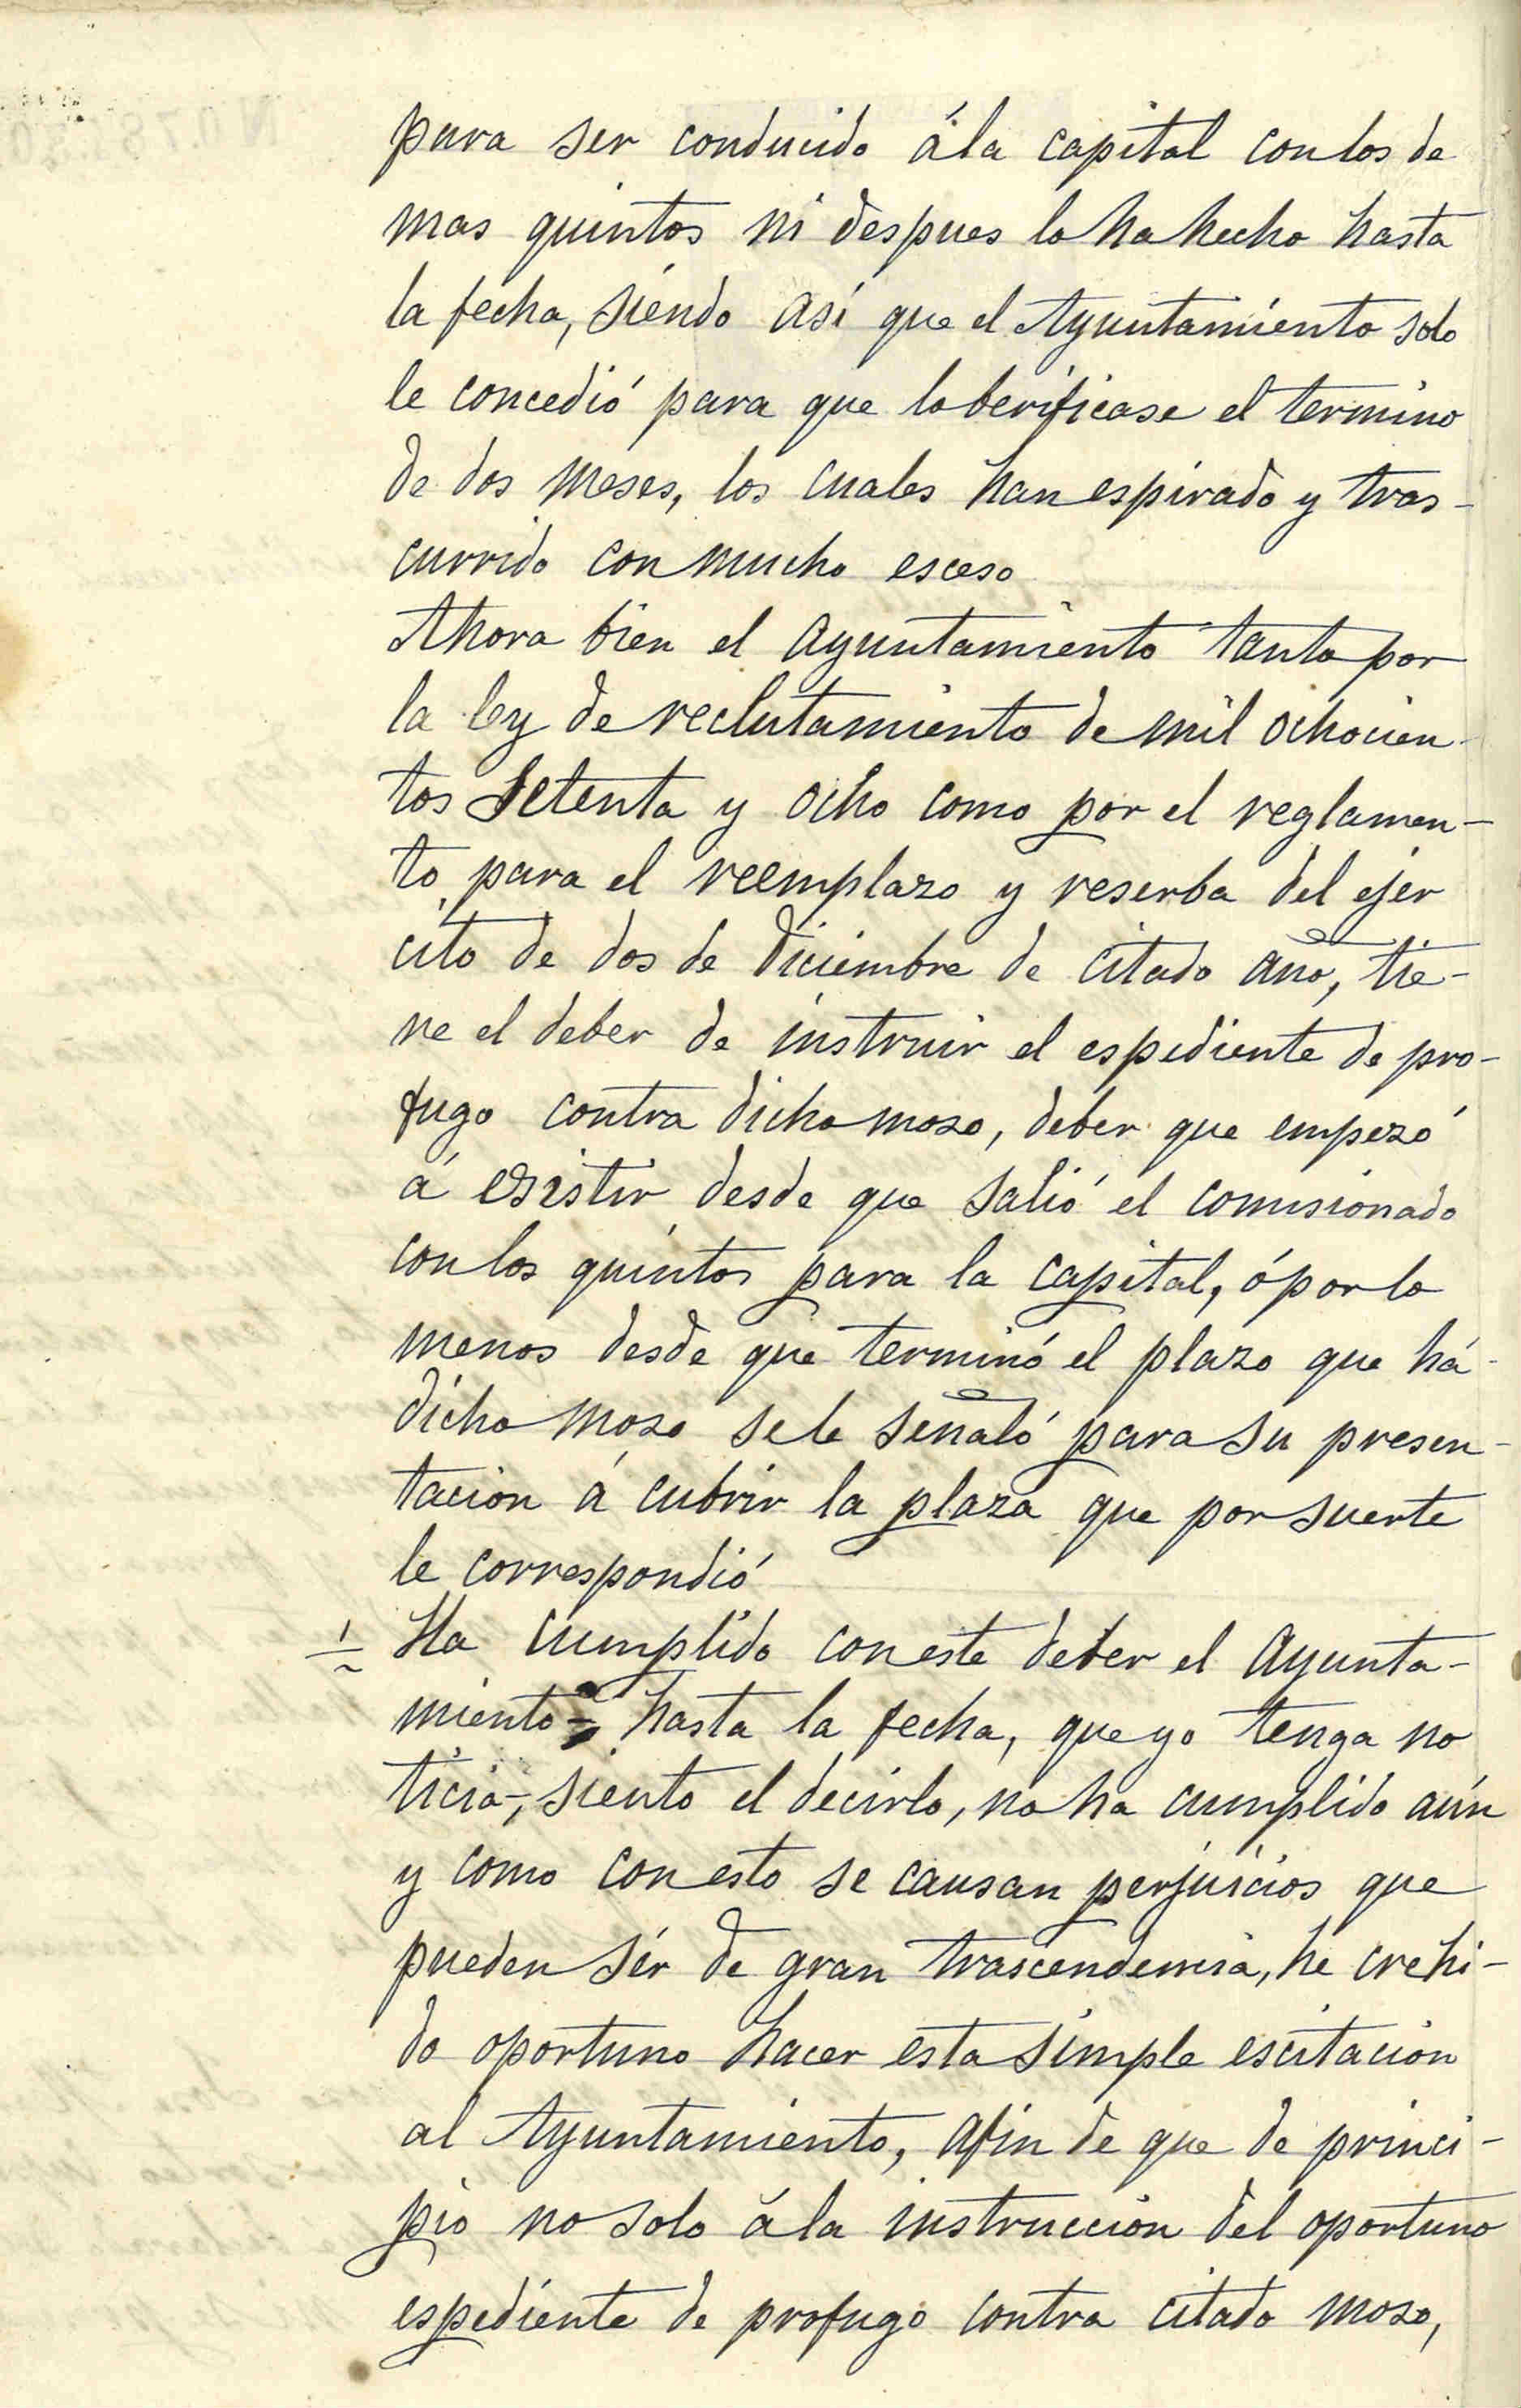 para ser conducido á la capital con los de
mas quintos ni despues lo ha hecho hasta
la fecha, siendo así que el Ayuntamiento solo
le concedió para que lo berificase el termino
de dos meses, los cuales han espirado y tras-
currido con mucho esceso
Ahora bien el Ayuntamiento tanto por
la ley de reclutamiento de mil ochocien-
tos Setenta y ocho como por el reglamen-
to para el reemplazo y reserba del ejer
cito de dos de Diciembre de citado año, tie-
ne el deber de instruir el espediente de pro-
fugo contra dicho moso, deber que empezó
á esistir desde que salió el comisionado
con los quintos para la capital, ó por lo
menos desde que terminó el plazo que há
dicho moso se le señaló para su presen-
tacion á cubrir la plaza que por suerte
le correspondió
Ha cumplido con este deber el Ayunta-
miento? hasta la fecha, que yo tenga no
ticia, siento el decirlo, no ha cumplido aún
y como con esto se causan perjuicios que
pueden sér de gran trascendencia, he crehi-
do oportuno hacer esta simple escitacion
al Ayuntamiento, afin de que de princi-
pio no solo á la instruccion del oportuno
espediente de profugo contra citado moso,